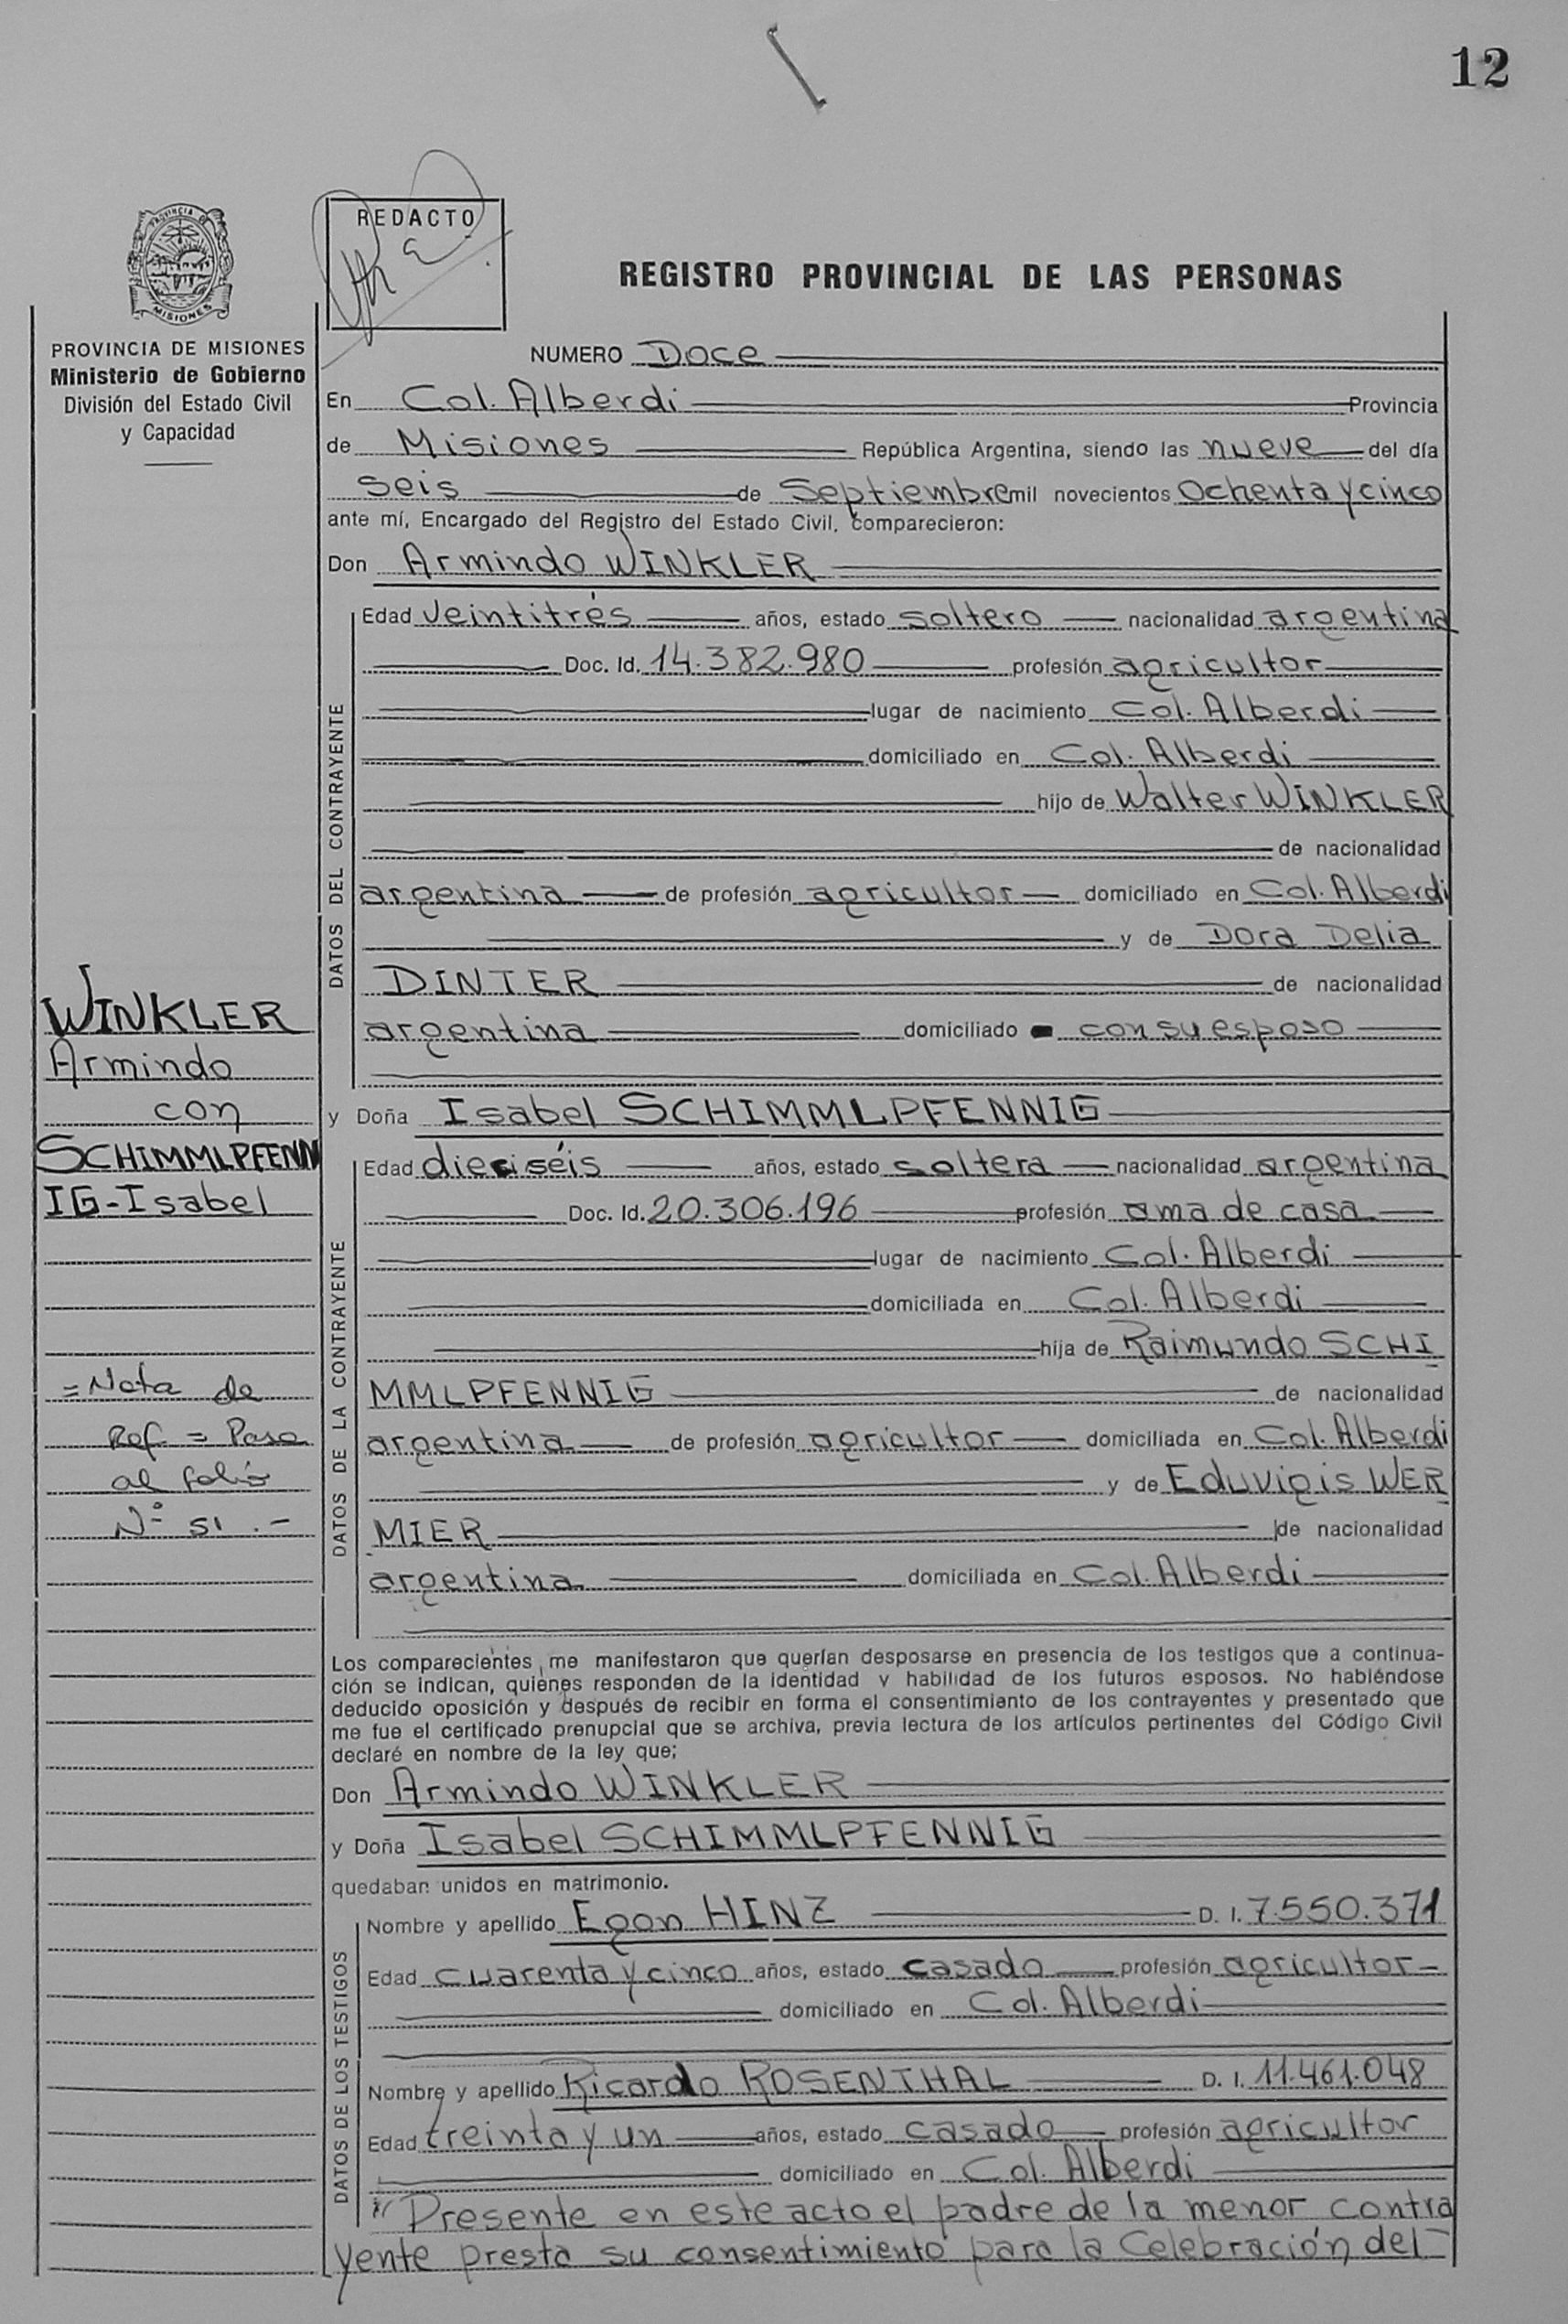 12
PROVINCIA DE
MISIONES
REDACTO
REGISTRO PROVINCIAL DE LAS PERSONAS
PROVINCIA DE MISIONES
Ministerio de Gobierno
División del Estado Civil
y Capacidad
WINKLER
Armindo
con
SCHIMMLPFENN
IG-Isabel
=Nota de
Ref = Pasa
al folio
Nº 51.-
NUMERO Doce
En Col. Alberdi Provincia
de Misiones República Argentina, siendo las nueve del día
seis de Septiembre mil novecientos Ochenta y cinco
ante mí, Encargado del Registro del Estado Civil, comparecieron:
Don Armindo WINKLER
DATOS DEL CONTRAYENTE
Edad Veintitrés años, estado soltero nacionalidad argentina
Doc. Id. 14.382.980 profesión agricultor
lugar de nacimiento Col. Alberdi
domiciliado en Col. Alberdi
hijo de Walter WINKLER
de nacionalidad
argentina de profesión agricultor domiciliado en Col. Alberdi
y de Dora Delia
DINTER de nacionalidad
argentina domiciliado con su esposo
y Doña Isabel SCHIMMLPFENNIG
DATOS DE LA CONTRAYENTE
Edad dieciséis años, estado soltera nacionalidad argentina
Doc. Id. 20.306.196 profesión ama de casa
lugar de nacimiento Col. Alberdi
domiciliada en Col. Alberdi
hija de Raimundo SCHI
MMLPFENNIG de nacionalidad
argentina de profesión agricultor domiciliada en Col. Alberdi
y de Eduvigis WER
MIER de nacionalidad
argentina domiciliada en Col. Alberdi
Los comparecientes me manifestaron que querían desposarse en presencia de los testigos que a continua-
ción se indican, quienes responden de la identidad y habilidad de los futuros esposos. No habiéndose
deducido oposición y después de recibir en forma el consentimiento de los contrayentes y presentado que
me fue el certificado prenupcial que se archiva, previa lectura de los artículos pertinentes del Código Civil
declaré en nombre de la ley que;
Don Armindo WINKLER
y Doña Isabel SCHIMMLPFENNIG
quedaban unidos en matrimonio.
DATOS DE LOS TESTIGOS
Nombre y apellido Egon HINZ D. I. 7.550.371
Edad cuarenta y cinco años, estado casado profesión agricultor
domiciliado en Col. Alberdi
Nombre y apellido Ricardo ROSENTHAL D. I. 11.461.048
Edad treinta y un años, estado casado profesión agricultor
domiciliado en Col. Alberdi
" Presente en este acto el padre de la menor contra
yente presta su consentimiento para la Celebración del